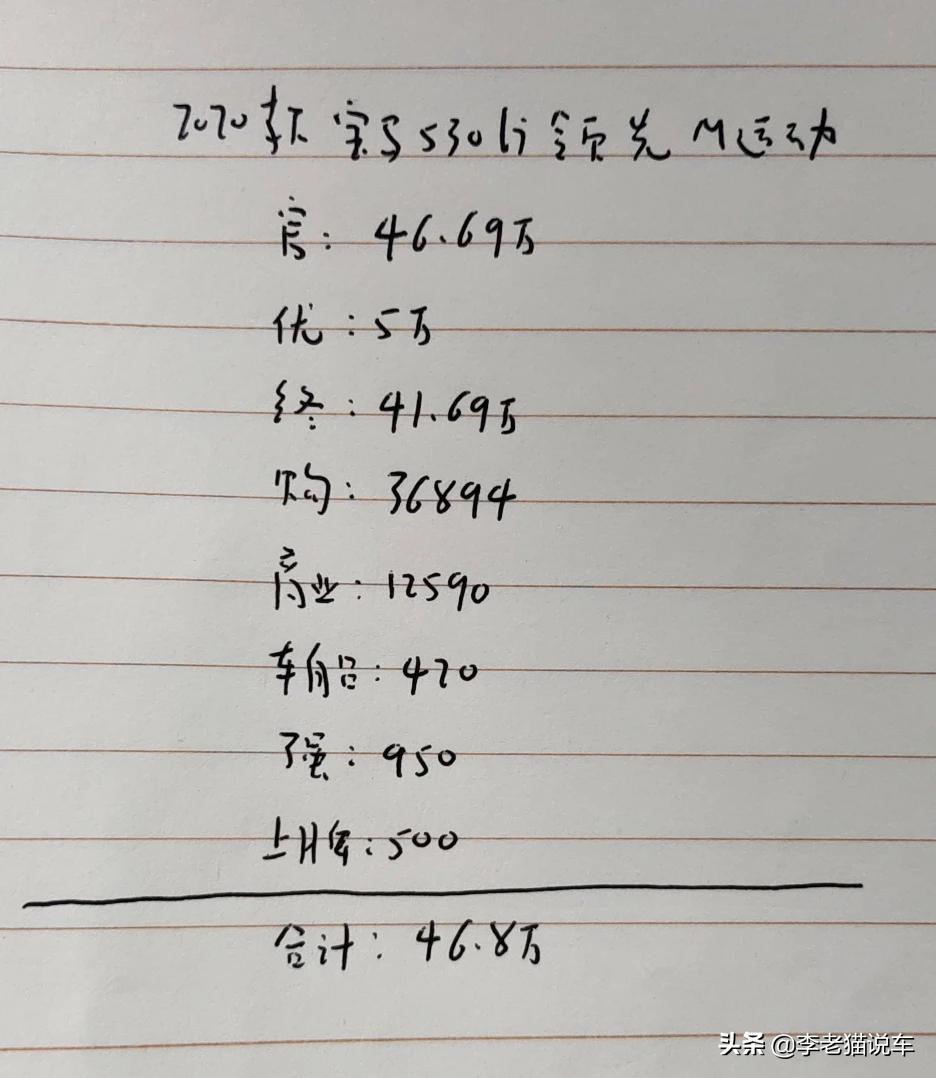 2020款宝马530li领先M运动
官：46.69万
优：5万
终：41.69万
购：36894
商业：12590
车船：420
强：950
上牌：500
合计：46.8万
头条 @李老猫说车